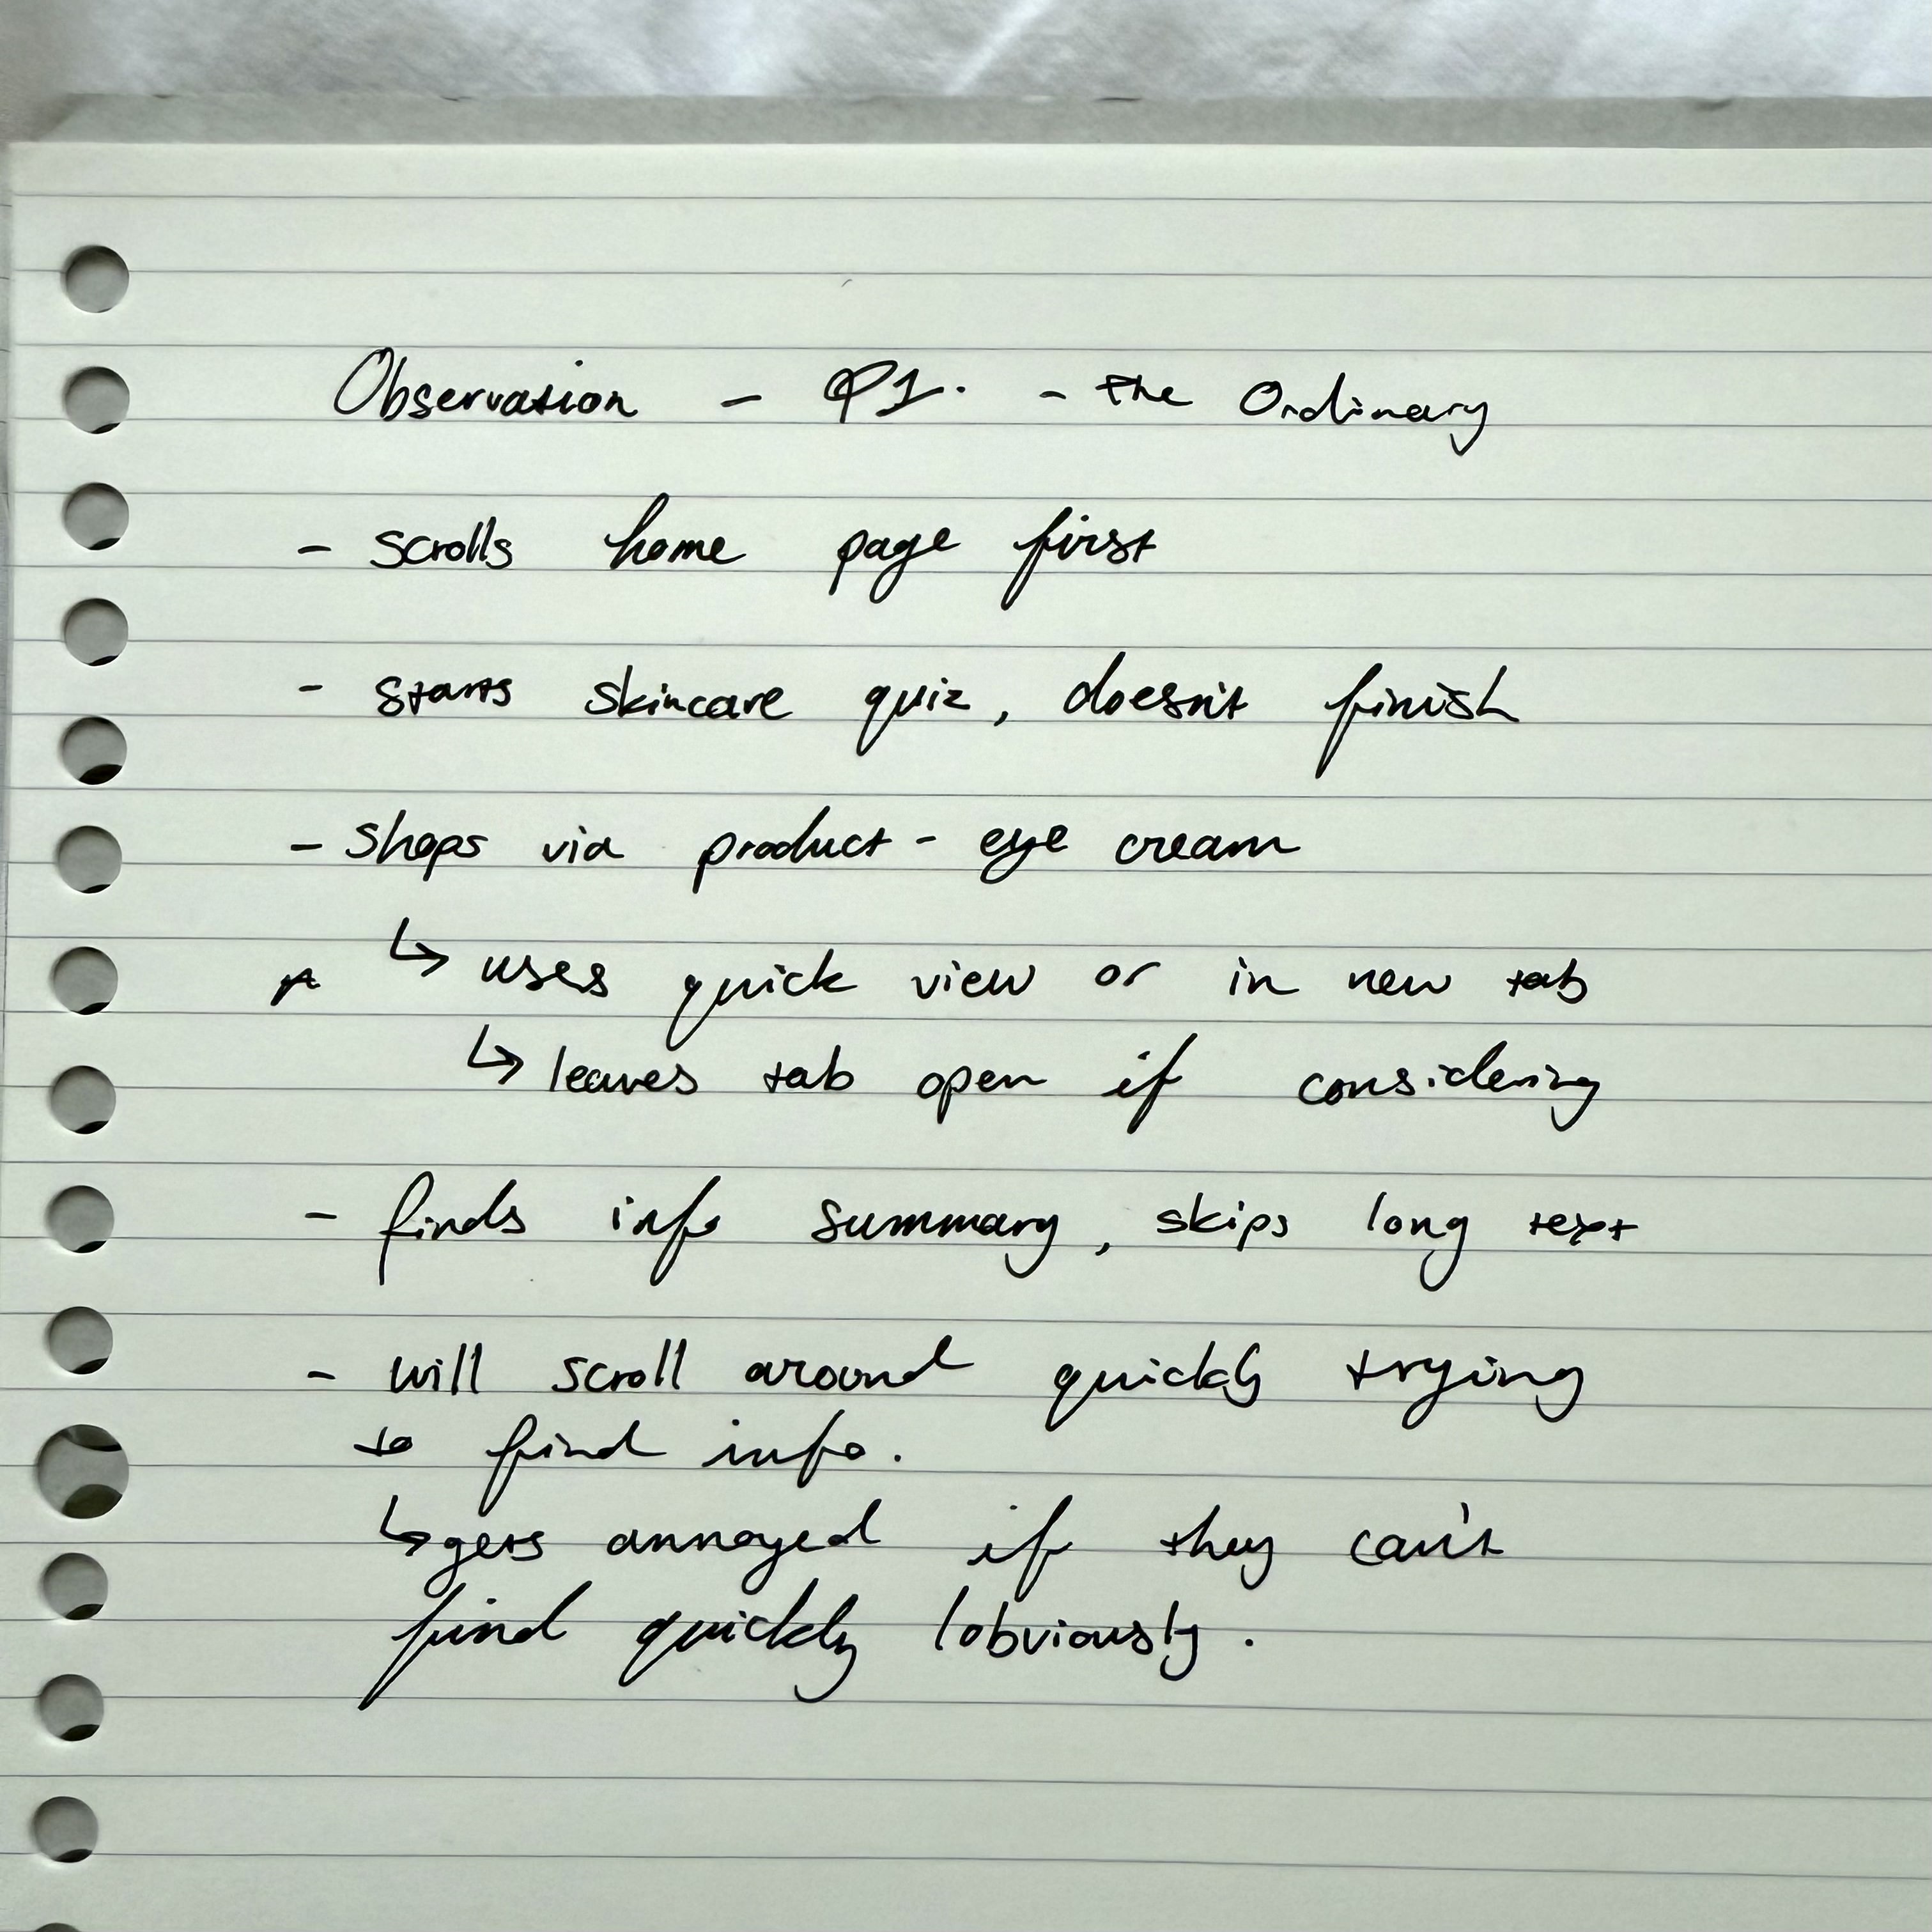 Observation - P1. - The Ordinary
- scrolls home page first
- starts skincare quiz, doesn't finish
- shops via product - eye cream
↳ uses quick view or in new tab
↳ leaves tab open if considering
- finds info summary, skips long text
- will scroll around quickly trying
to find info.
↳ gets annoyed if they can't
find quickly / obviously.